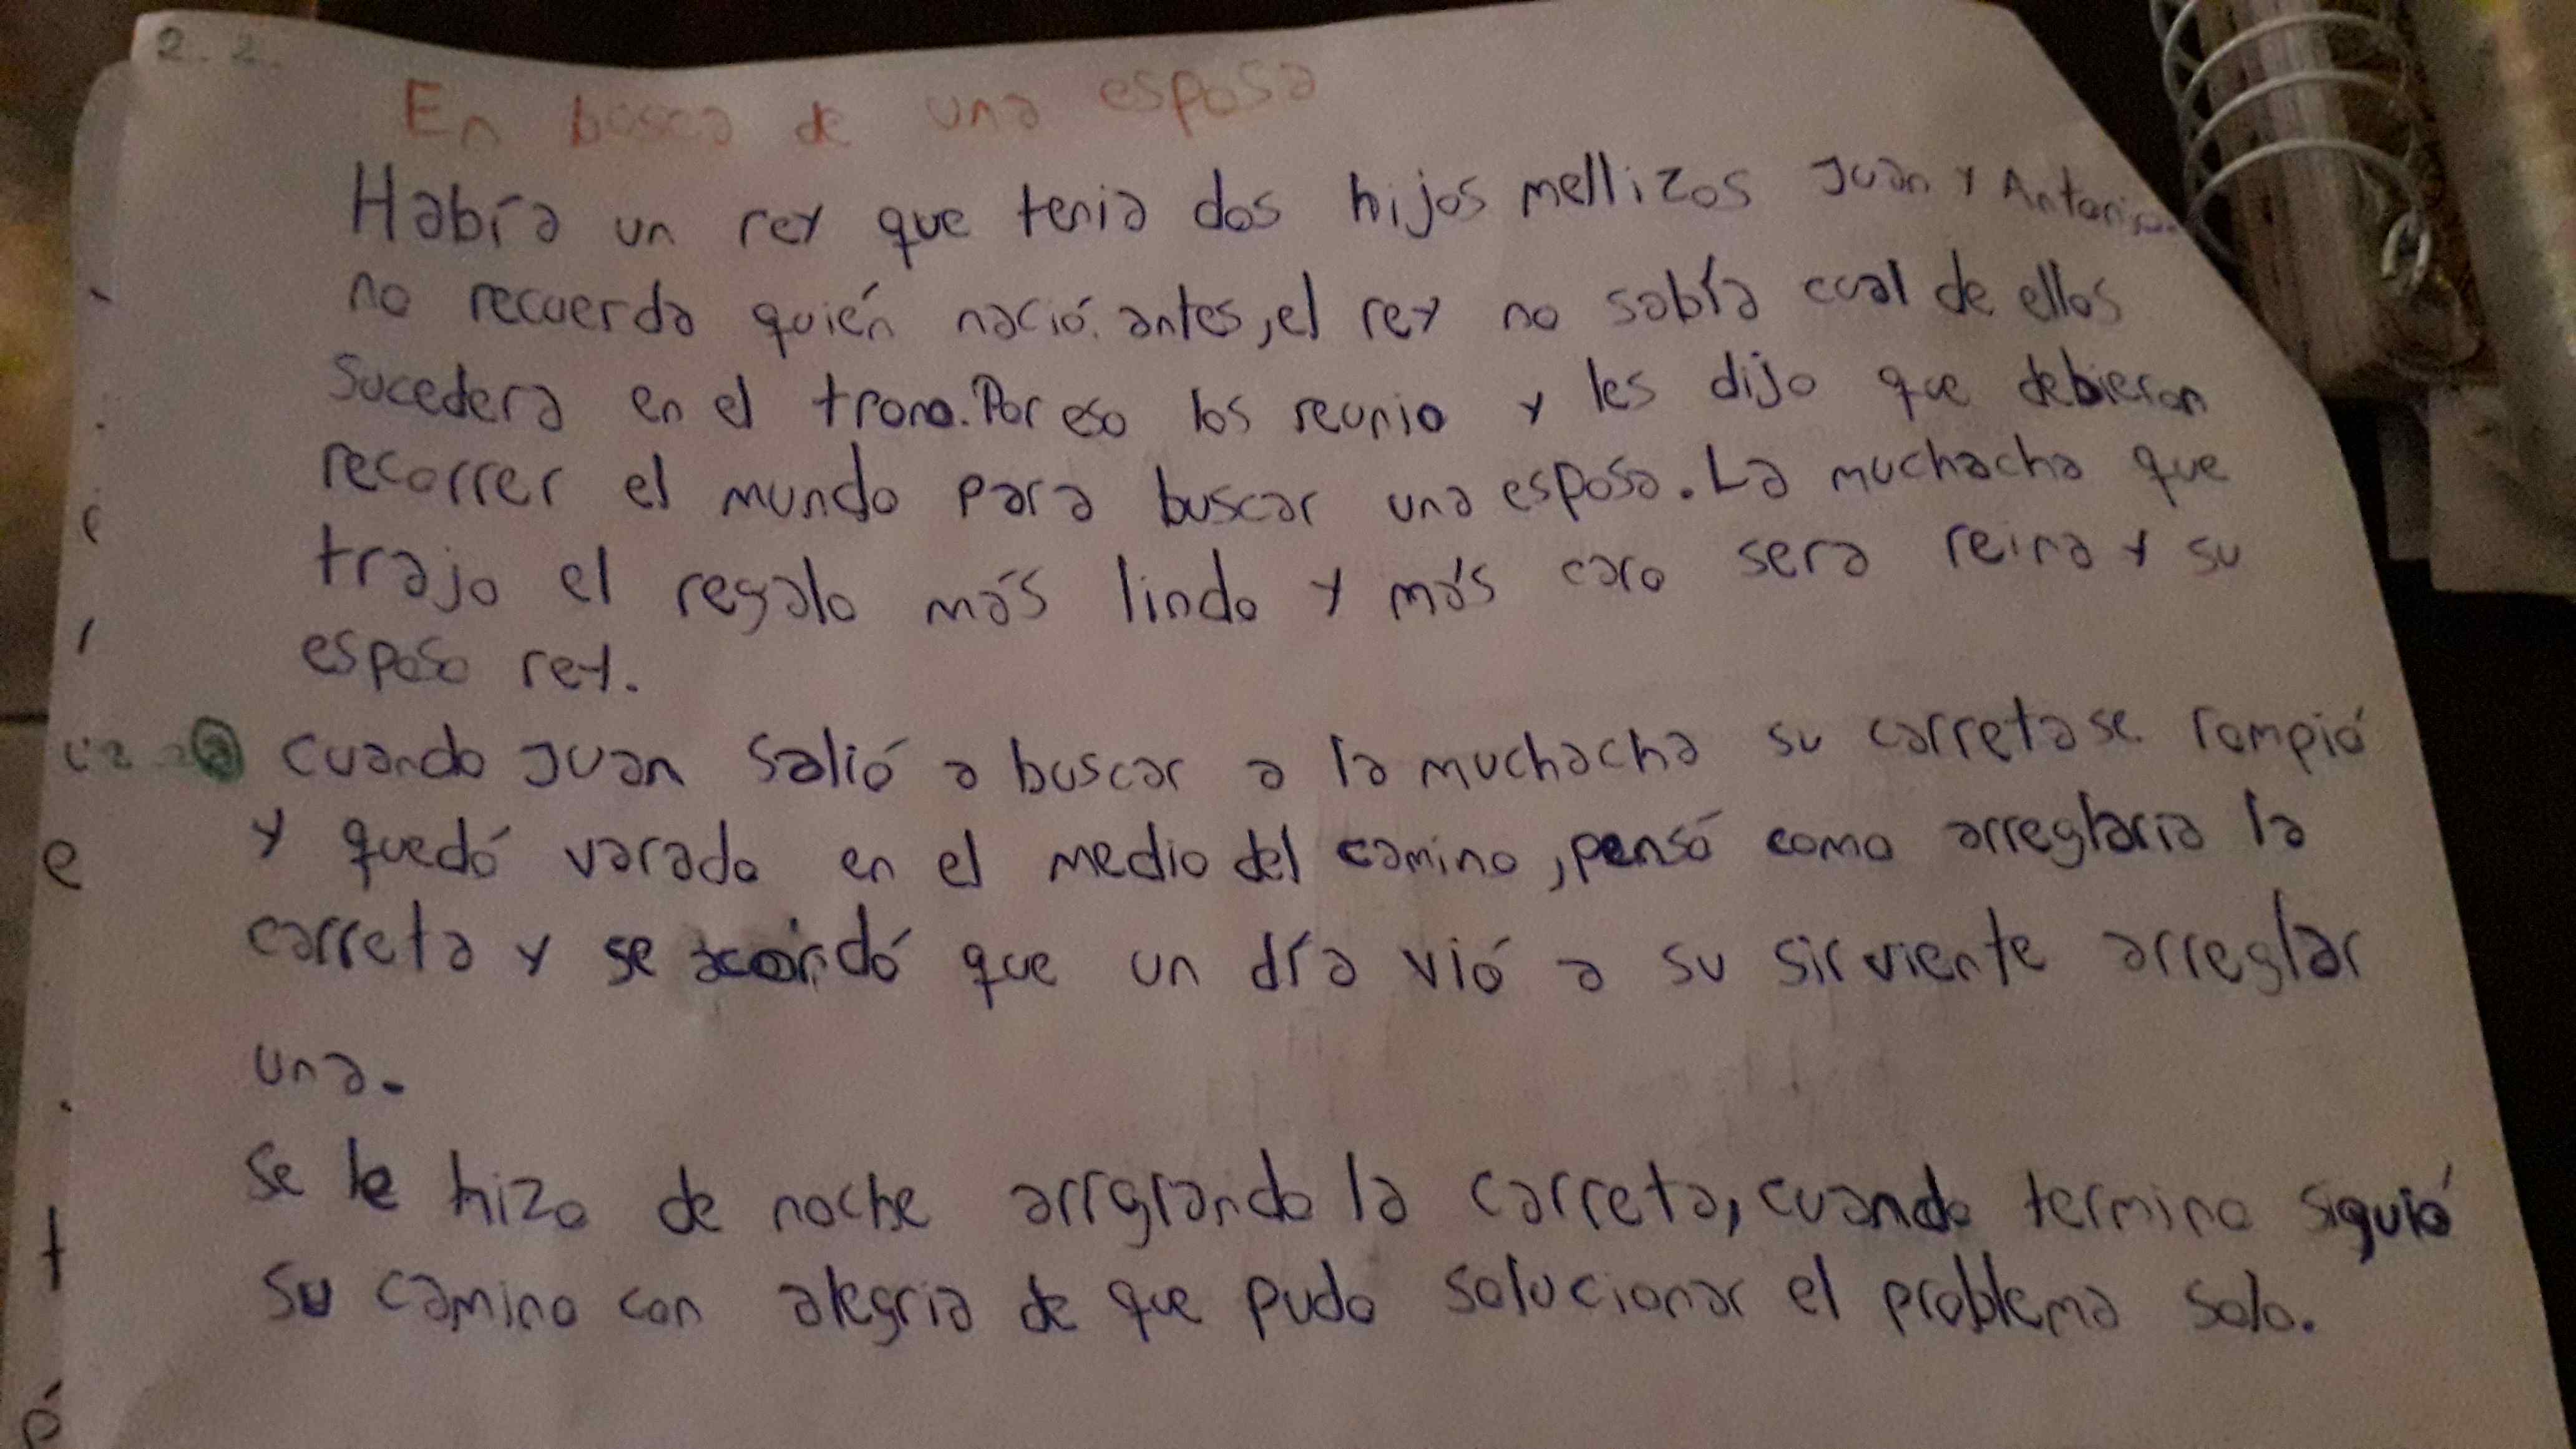 2. 2.
En busca de una esposa
Había un rey que tenia dos hijos mellizos Juan y
no recuerda quién nació. antes, el rey no sabía cual de ellos
sucedera en el trono. Por eso los reunio y les dijo que debieron
recorrer el mundo para buscar una esposa. La muchacha que
trajo el regalo más lindo y más caro sera reina y su
esposo rey.
Cuando Juan salió a buscar a la muchacha su carreta se rompió
y quedó varado en el medio del camino, pensó como arreglaria la
carreta y se acordó que un día vió a su sirviente arreglar
una.
se le hizo de noche arrgrando la carreta, cuando termino siguió
su camino con alegria de que pudo solucionar el problema solo.